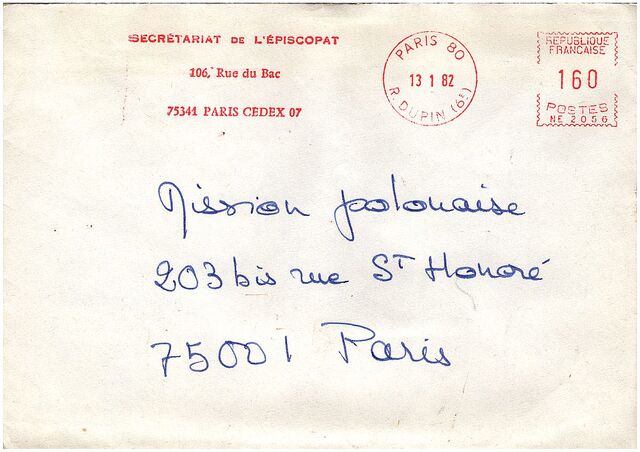 SECRÉTARIAT DE L'ÉPISCOPAT
106, Rue du Bac
75341 PARIS CEDEX 07
PARIS 80
13 1 82
R. DUPIN (6E)
REPUBLIQUE
FRANCAISE
160
POSTES
NE 2056
Mission polonaise
203 bis rue ST Honoré
75001 Paris